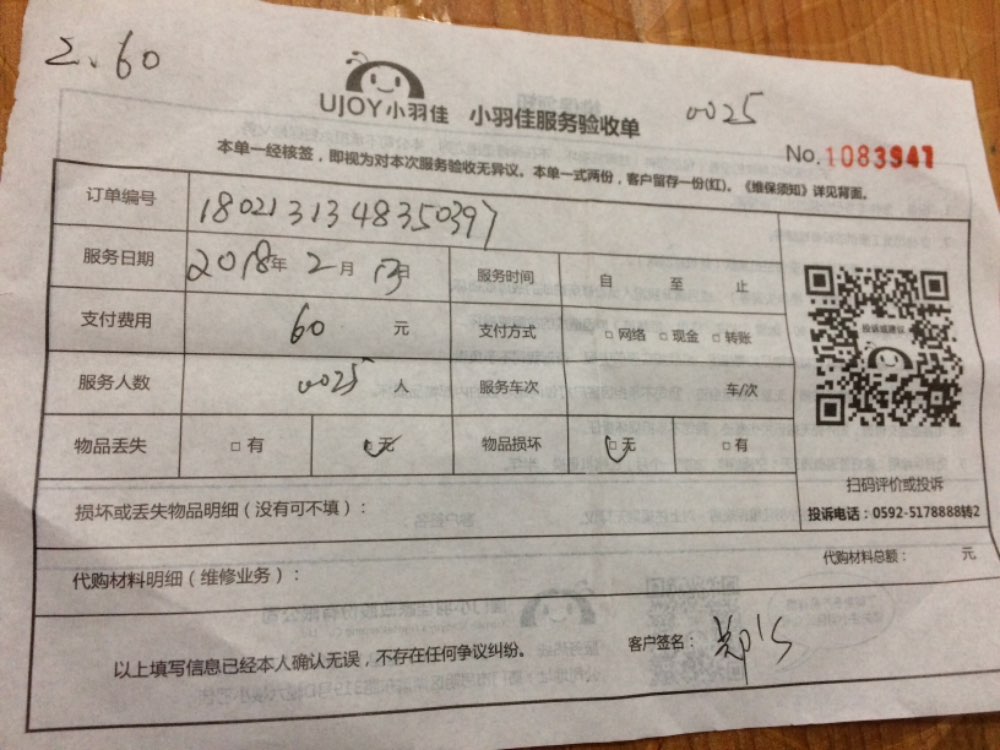 2.60
UJOY小羽佳 小羽佳服务验收单
0025
No.1083941
本单一经核签，即视为对本次服务验收无异议。本单一式两份，客户留存一份(红)。《维保须知》详见背面。
订单编号 1802131348350397
服务日期 2018年 2月 13日 服务时间 自 至 止
支付费用 60 元 支付方式 □网络 □现金 □转账
服务人数 0025 人 服务车次 车/次
物品丢失 □有 □无 物品损坏 □无 □有
投诉或建议
扫码评价或投诉
投诉电话：0592-5178888转2
损坏或丢失物品明细（没有可不填）：
代购材料明细（维修业务）： 代购材料总额： 元
以上填写信息已经本人确认无误，不存在任何争议纠纷。 客户签名：